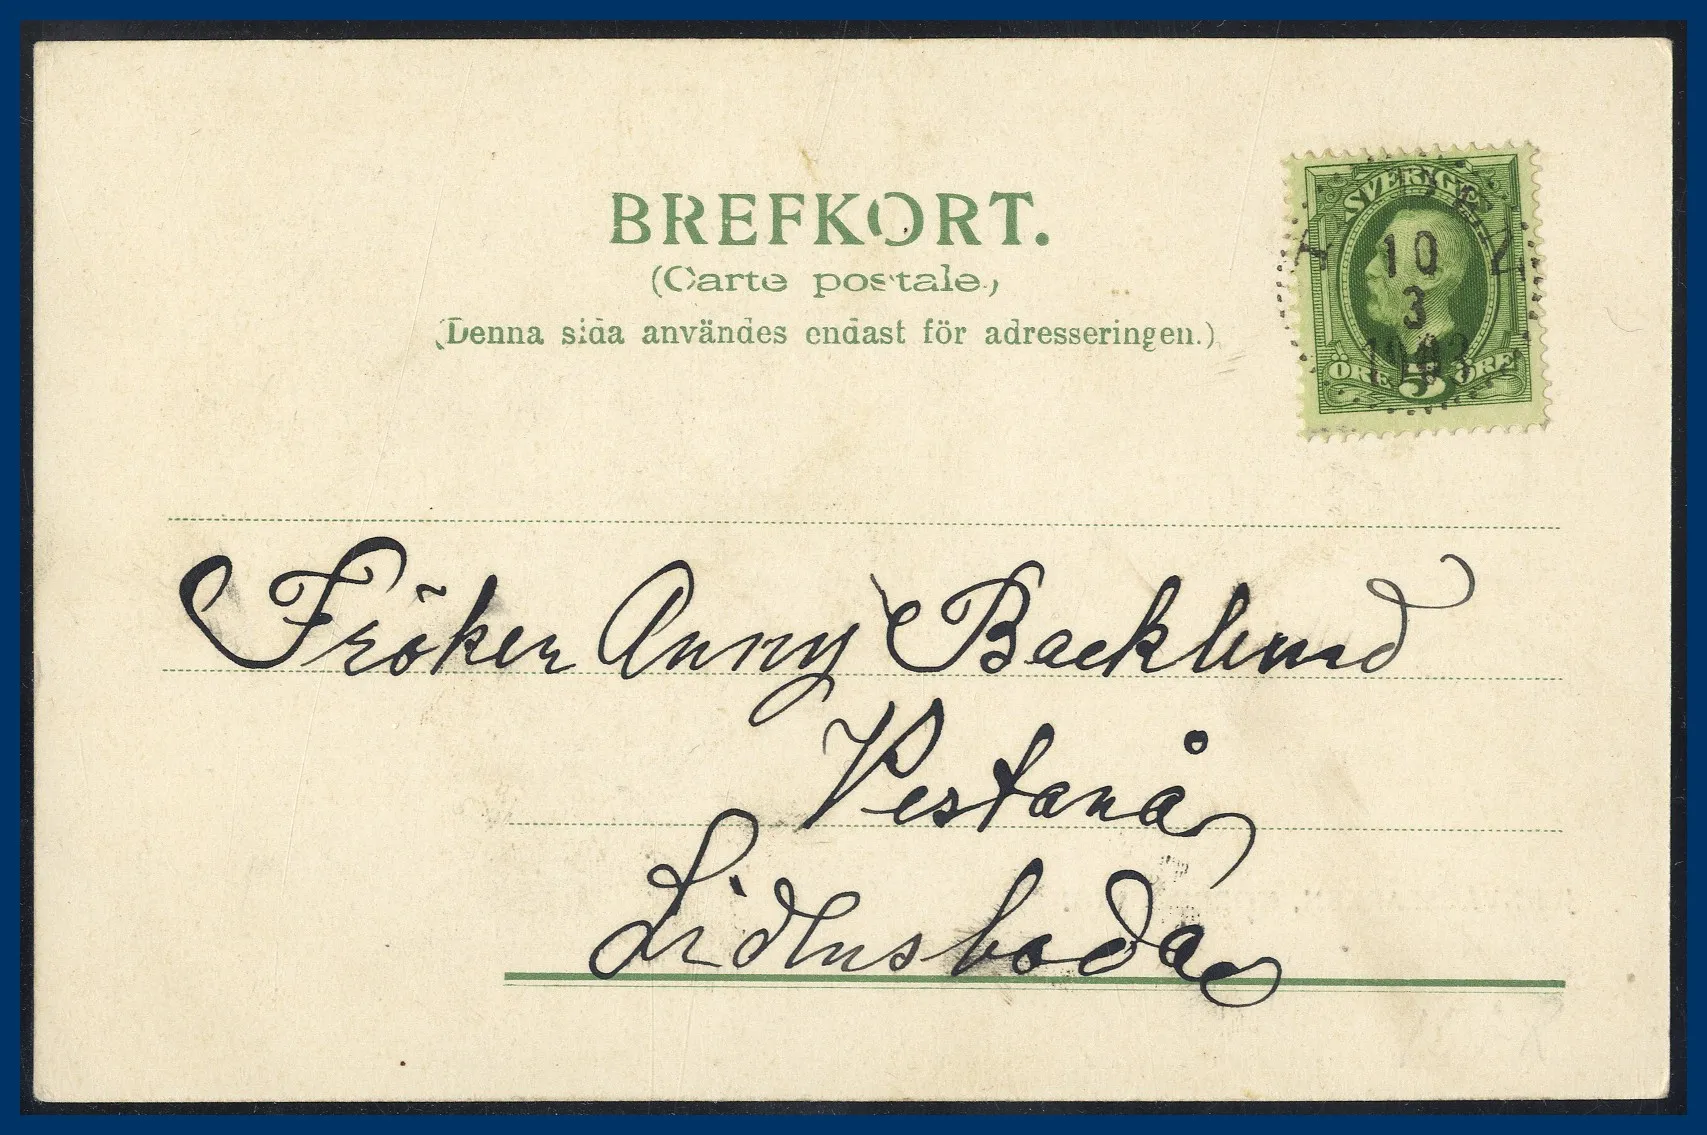 BREFKORT.
(Carte postale.)
(Denna sida användes endast för adresseringen.)
SVERIGE
10
3
1903
ÖRE 5 ÖRE
Fröken Anny Backlund
Vestanå
Lidhusboda